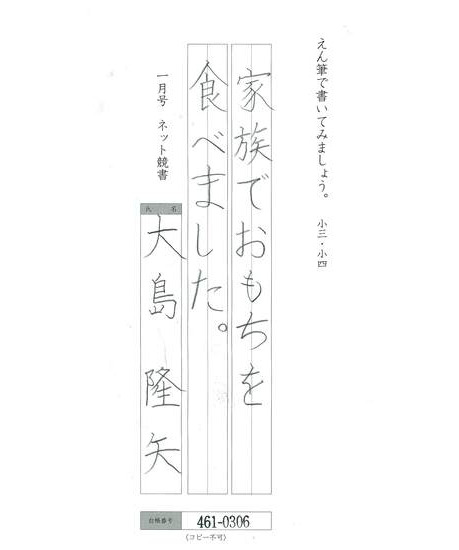 えん筆で書いてみましょう。 小三・小四
家族でおもちを
食べました。
一月号 ネット競書
氏名
大島隆矢
台帳番号
461-0306
(コピー不可)